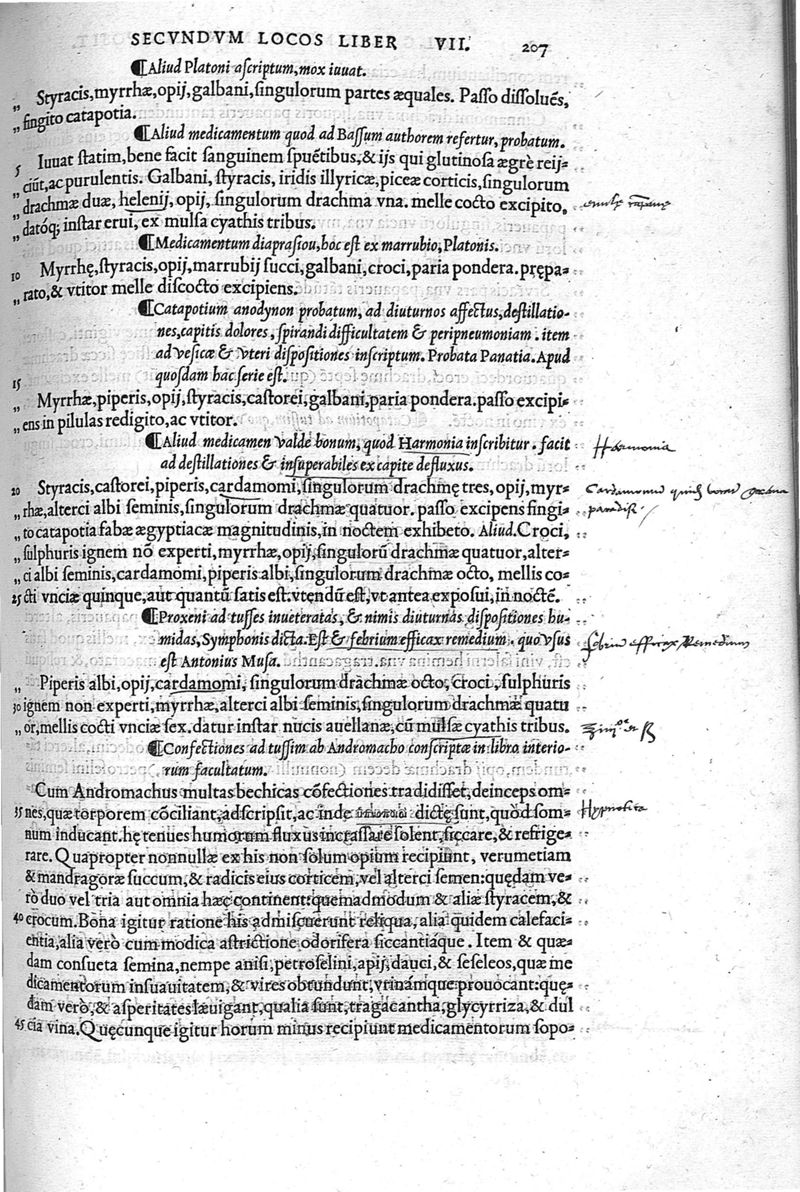 SECVNDVM LOCOS LIBER VII. 207
¶Aliud Platoni ascriptum, mox iuuat.
„ Styracis, myrrhæ, opij, galbani, singulorum partes æquales. Passo dissolués,
„ fingito catapotia.
¶Aliud medicamentum quod ad Bassum authorem refertur, probatum.
5 Iuuat statim, bene facit sanguinem spuẽtibus, & ijs qui glutinosa ægrè reij-
„ ciũt, ac purulentis. Galbani, styracis, iridis illyricæ, piceæ corticis, singulorum
„ drachmæ duæ, helenij, opij, singulorum drachma vna. melle cocto excipito,
„ datóq; instar erui, ex mulsa cyathis tribus.
¶Medicamentum diaprasiou, hoc est ex marrubio, Platonis.
10 Myrrhę, styracis, opij, marrubij succi, galbani, croci, paria pondera. prępa-
„ rato, & vtitor melle discocto excipiens.
¶Catapotium anodynon probatum, ad diuturnos affectus, destillatio-
nes, capitis dolores, spirandi difficultatem & peripneumoniam. item
ad vesicæ & vteri dispositiones inscriptum. Probata Panatia. Apud
15 quosdam hac serie est.
„ Myrrhæ, piperis, opij, styracis, castorei, galbani, paria pondera. passo excipi-
„ ens in pilulas redigito, ac vtitor.
¶Aliud medicamen valde bonum, quod Harmonia inscribitur. facit
Harmonia
ad destillationes & insuperabiles ex capite defluxus.
20 Styracis, castorei, piperis, cardamomi, singulorum drachmę tres, opij, myr-
„ rhæ, alterci albi seminis, singulorum drachmæ quatuor. passo excipens fingi-
„ to catapotia fabæ ægyptiacæ magnitudinis, in noctem exhibeto. Aliud. Croci,
„ sulphuris ignem nõ experti, myrrhæ, opij, singulorũ drachmæ quatuor, alter-
„ ci albi seminis, cardamomi, piperis albi, singulorum drachmæ octo, mellis co-
25 cti vnciæ quinque, aut quantũ satis est. vtendũ est, vt antea exposui, in noctẽ.
¶Proxeni ad tusses inueteratas, & nimis diuturnas dispositiones hu-
midas, Symphonis dicta. Est & febrium efficax remedium. quo vsus
febriu efficax Remedium
est Antonius Musa.
„ Piperis albi, opij, cardamomi, singulorum drachmæ octo, croci, sulphuris
30 ignem non experti, myrrhæ, alterci albi seminis, singulorum drachmæ quatu
„ or, mellis cocti vnciæ sex. datur instar nucis auellanæ, cũ mulsæ cyathis tribus.
¶Confectiones ad tussim ab Andromacho conscriptæ in libro interio-
rum facultatum.
Cum Andromachus multas bechicas cõfectiones tradidisset, deinceps om-
35 nes, quæ torporem cõciliant, adscripsit, ac inde dictę sunt, quòd som-
Hypnotica
num inducant. hę tenues humorum fluxus incrassare solent, siccare, & refrige-
rare. Quapropter nonnullæ ex his non solum opium recipiunt, verumetiam
& mandragoræ succum, & radicis eius corticem, vel alterci semen: quędam ve-
rò duo vel tria aut omnia hæc continent: quemadmodum & aliæ styracem, &
40 crocum. Bona igitur ratione his admiscuerunt reliqua, alia quidem calefaci-
entia, alia verò cum modica astrictione odorifera siccantiaque. Item & quæ-
dam consueta semina, nempe anisi, petroselini, apij, dauci, & seseleos, quæ me
dicamentorum insuauitatem, & vires obtundunt, vrinámque prouocant: quę-
dam verò, & asperitates læuigant, qualia sunt, tragacantha, glycyrriza, & dul
45 cia vina. Quęcunque igitur horum minus recipiunt medicamentorum sopo-